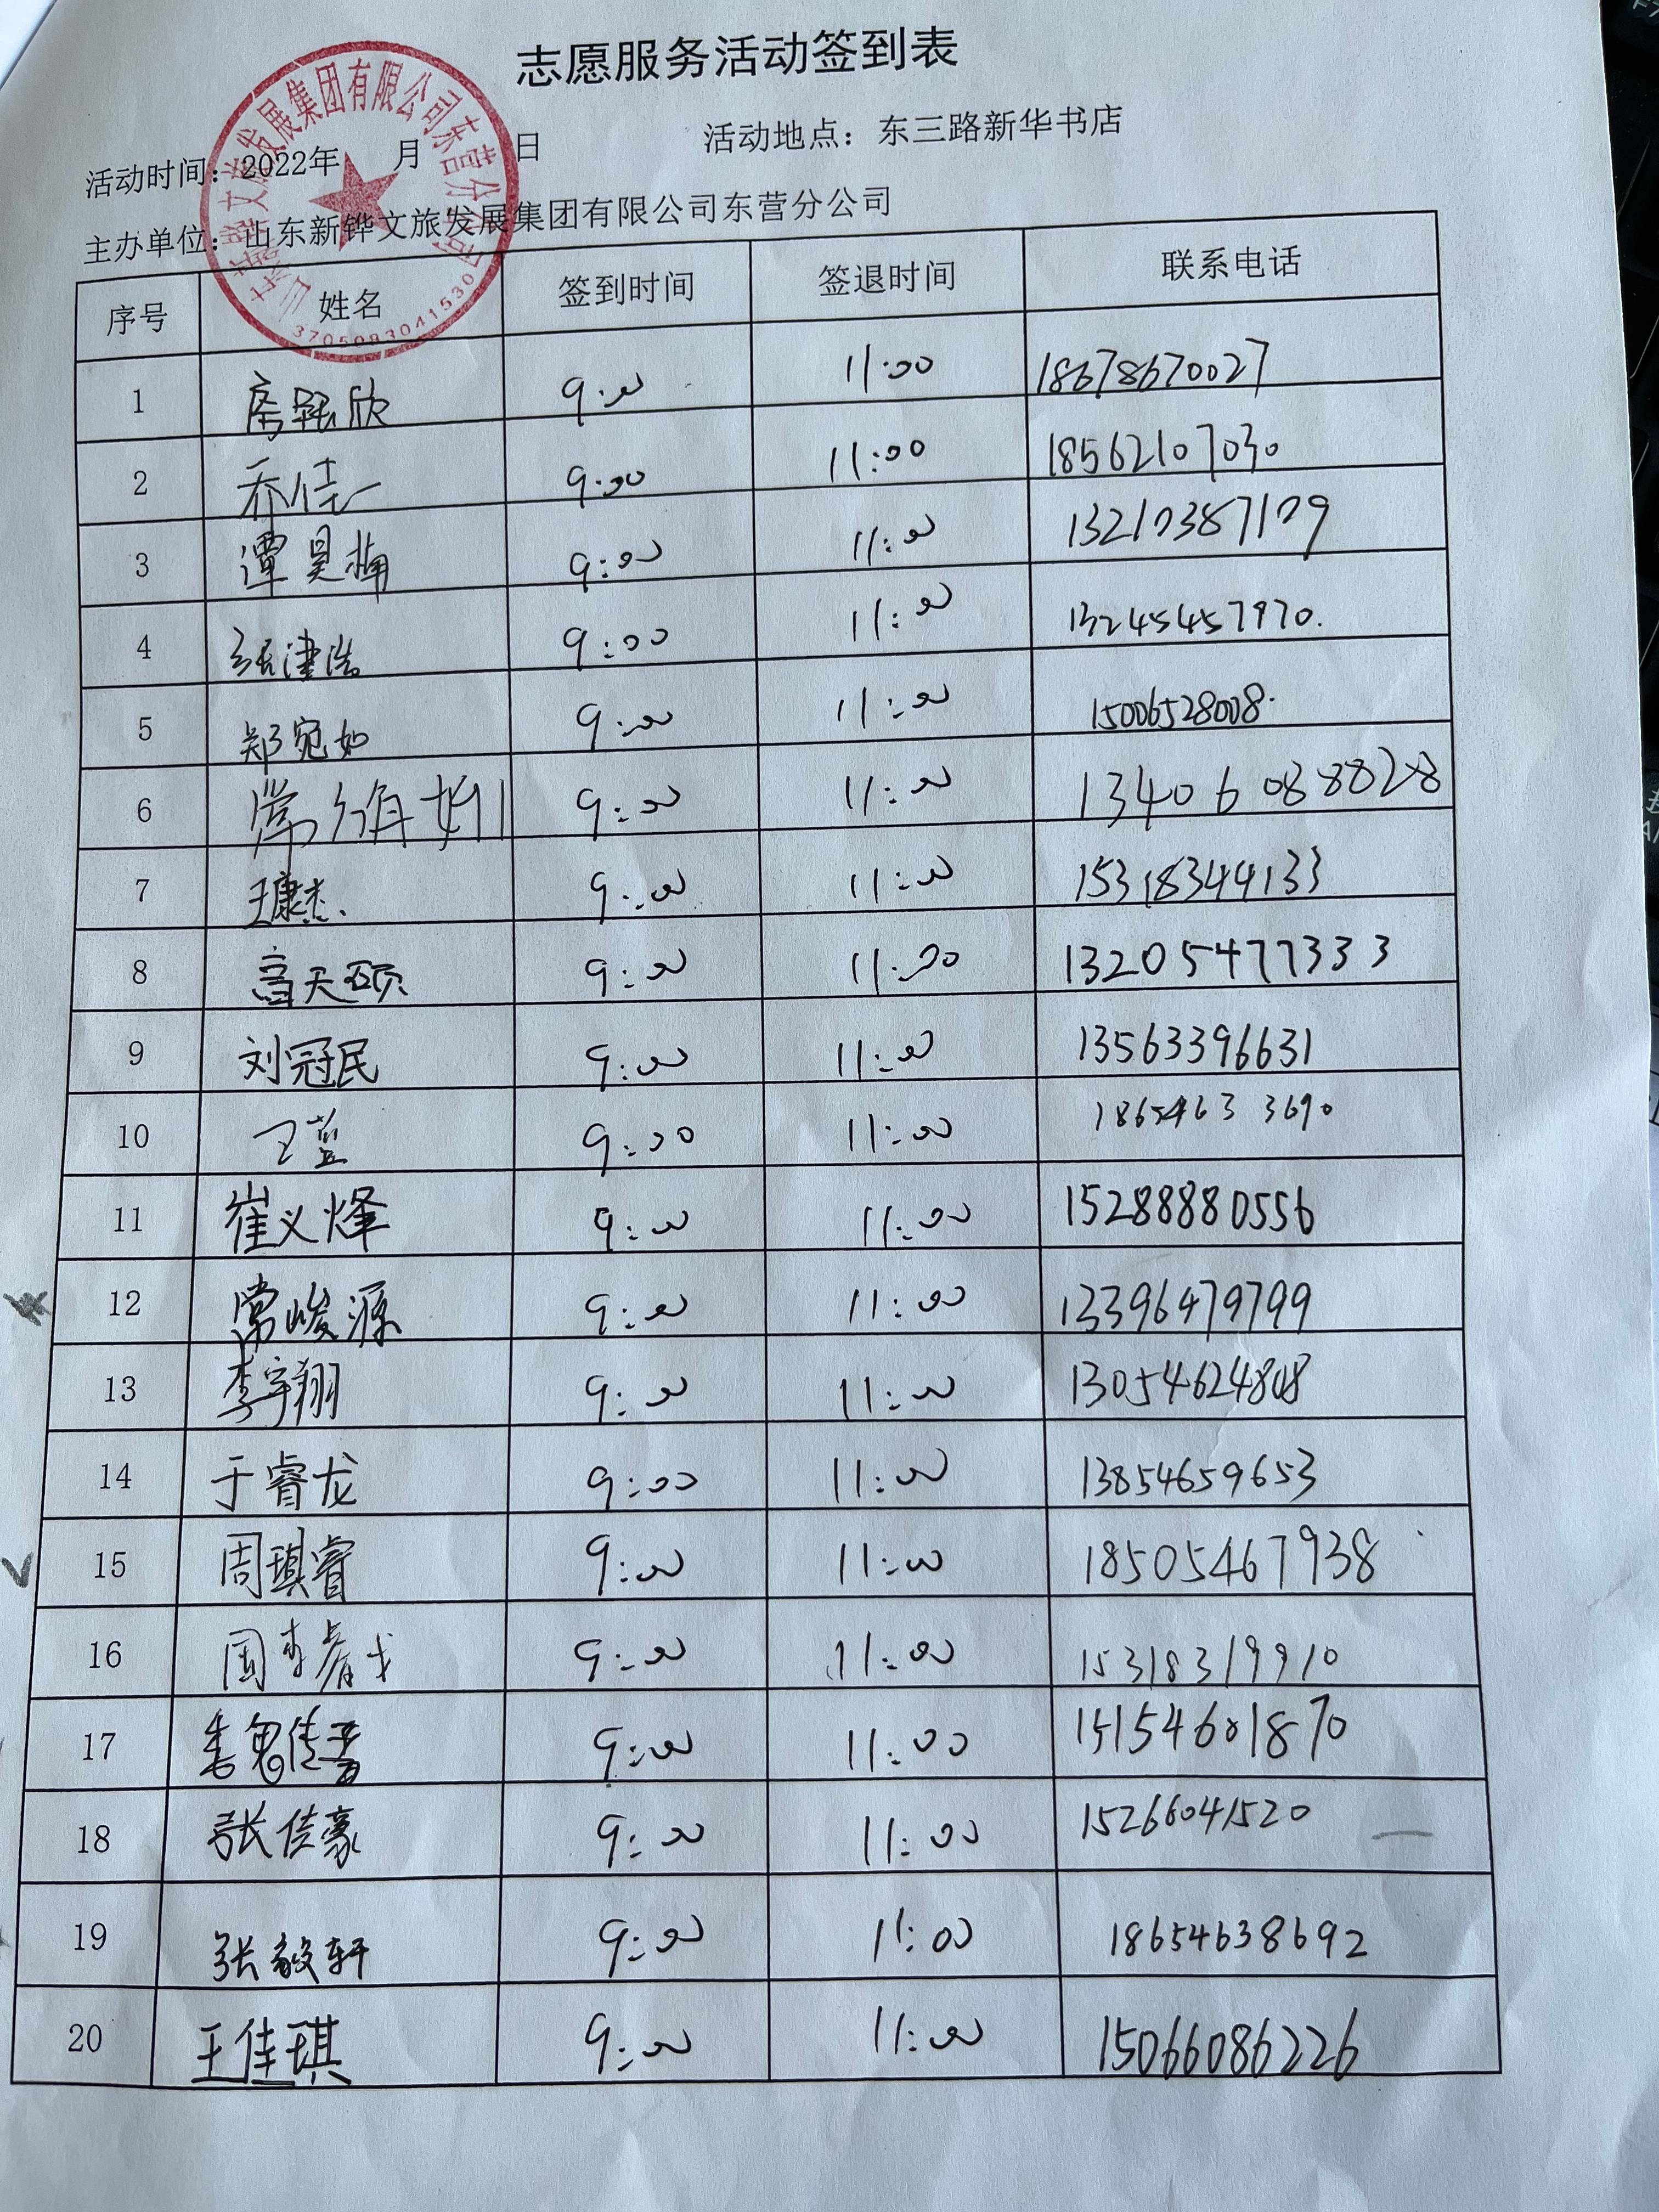 志愿服务活动签到表
活动时间：2022年 月 日 活动地点：东三路新华书店
主办单位：山东新铧文旅发展集团有限公司东营分公司
山东新铧文旅发展集团有限公司东营分公司
3705093041530
序号 姓名 签到时间 签退时间 联系电话
1 欣 9:00 11:00 18678670027
2 乔佳一 9:00 11:00 18562107030
3 谭昊楠 9:00 11:00 13210387109
4 张津浩 9:00 11:00 13245457970.
5 郑宛如 9:00 11:00 15006528008.
6 常 9:00 11:00 13406088828
7 王康杰. 9:00 11:00 15318344133
8 高天硕 9:00 11:00 13205477333
9 刘冠民 9:00 11:00 13563396631
10 9:00 11:00 18654633690
11 崔义烽 9:00 11:00 15288880556
12 常峻源 9:00 11:00 13396479799
13 李宇翔 9:00 11:00 13054624808
14 于睿龙 9:00 11:00 13854659653
15 周琪睿 9:00 11:00 18505467938
16 9:00 11:00 15318319910
17 9:00 11:00 15154601870
18 张佳豪 9:00 11:00 15266041520
19 张毅轩 9:00 11:00 18654638692
20 王佳琪 9:00 11:00 15066086226